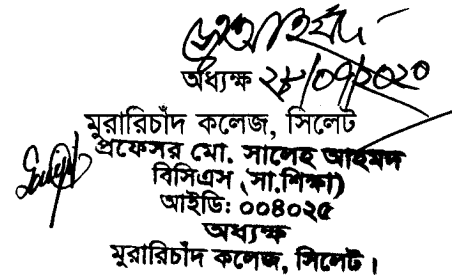 অধ্যক্ষ ২৮/০৭/২০২০
মুরারিচাঁদ কলেজ, সিলেট
প্রফেসর মো. সালেহ আহমদ
বিসিএস (সা.শিক্ষা)
আইডি: ০০৪০২৫
অধ্যক্ষ
মুরারিচাঁদ কলেজ, সিলেট।